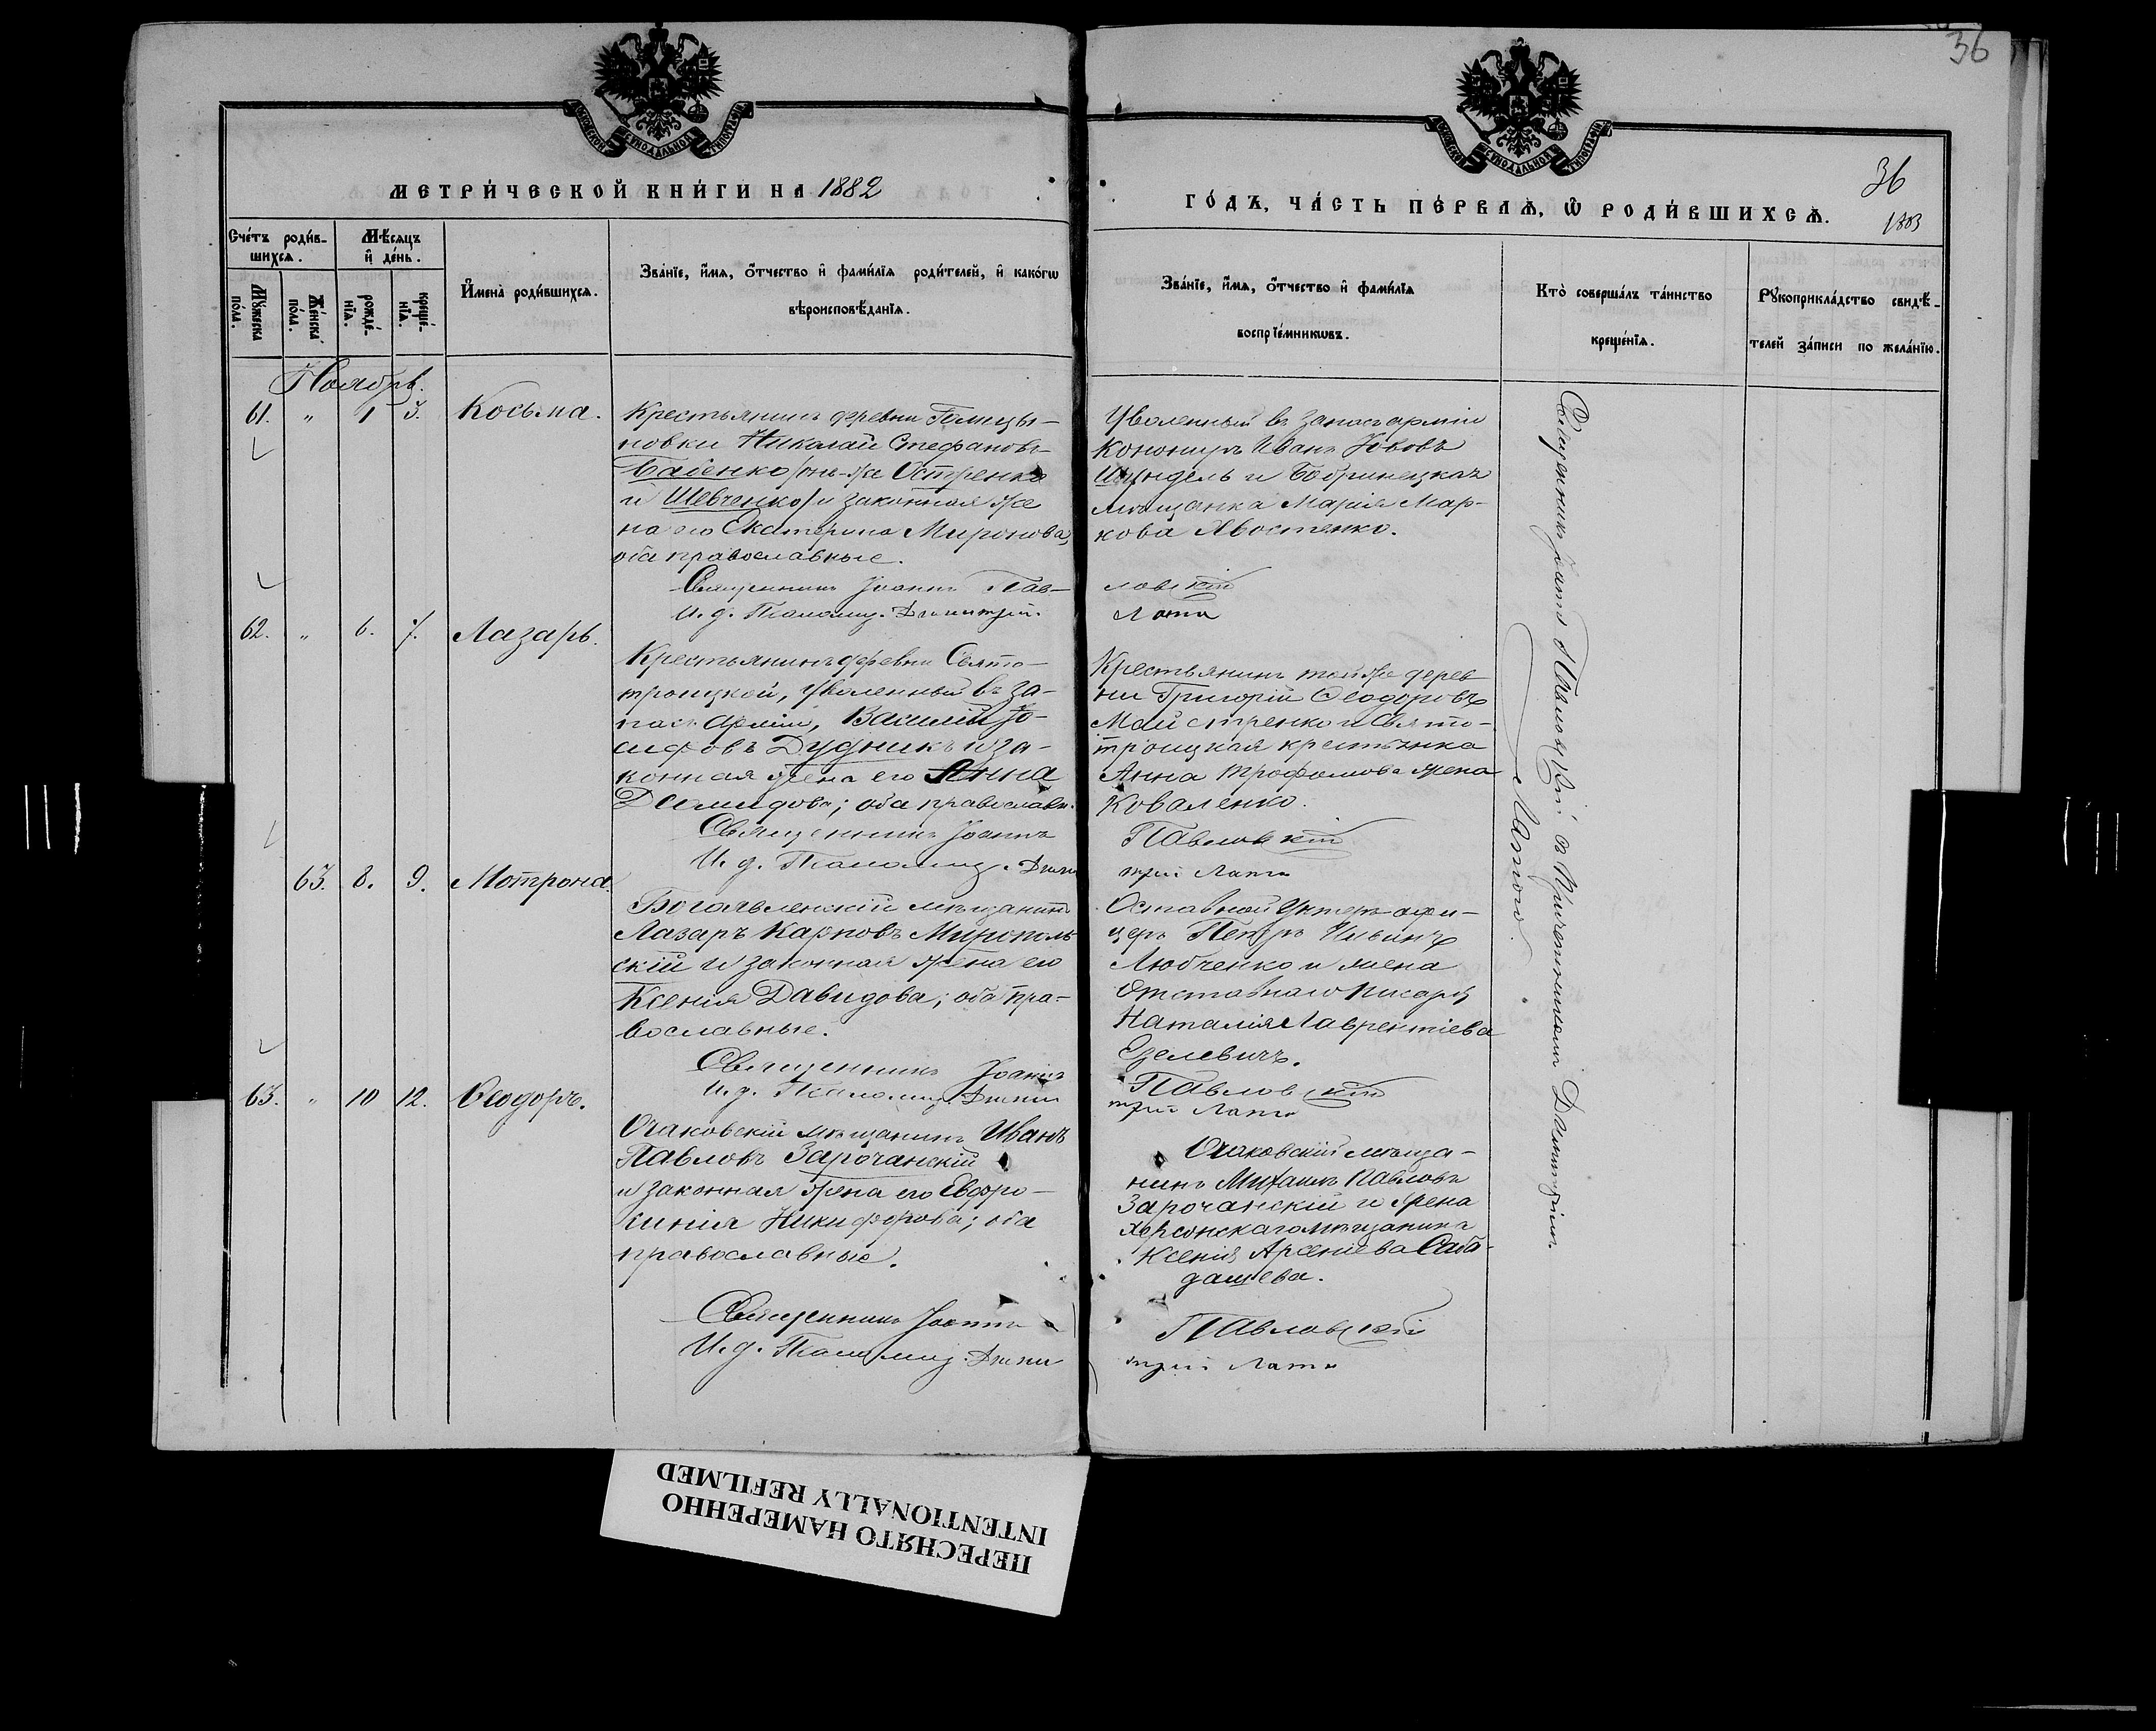 36
МЕТРИ́ЧЕСКОЙ КНИ́ГИ НА 1882
ГО́ДЪ, ЧА́СТЬ ПЕ́РВАѦ, Ѡ҆ РОДИ́ВШИХСѦ.
36
1883
Сче́тъ роди́в-
шихсѧ.
Мѣ́сѧцъ
и҆ де́нь.
Мꙋ́жеска по́ла.
Же́нска по́ла.
рожде́-
нїѧ.
креще́-
нїѧ.
И҆мена̀ роди́вшихсѧ.
Зва́нїе, и҆́мѧ, ѻ҆́тчество и҆ фами́лїѧ роди́телей, и҆ како́гѡ
вѣроисповѣ́данїѧ.
Зва́нїе, и҆́мѧ, ѻ҆́тчество и҆ фами́лїѧ
воспрїе́мникѡвъ.
Кто̀ соверша́лъ та́инство
креще́нїѧ.
Рꙋкоприкла́дство свидѣ́-
телей за́писи по жела́нїю.
Ноябрь.
61. " 1 3. Косьма.
Крестьянинъ деревни Голицы-
новки Николай Стефановъ
онъ-же Остренко
и Шевченко/ и законная же
на его Екатерина Миронова,
оба православные.
Священникъ Іоаннъ Пав-
И. д. Псаломщ. Димитрій
Уволенный въ запасъ арміи
Иванъ
и Бобринецкая
мѣщанка Марія Мар-
кова Хвостенко.
ловскій
Лапа
62. " 6. 7. Лазарь.
Крестьянинъ деревни Свято-
троицкой, уволенный въ за-
пасъ арміи, Василій Іо-
сифовъ Дудникъ и за-
конная жена его Анна
Демидова; оба православн.
Священникъ Іоаннъ
И. д. Псаломщ. Дими
Крестьянинъ той же дерев
ни Григорій Ѳеодоровъ
Майстренко и Свято-
троицкая крестьянка
Анна Трофимова жена
Коваленко.
Павловскій
трій Лапа
63. 8. 9. Мотрона.
Богоявленскій мѣщанинъ
Лазаръ Карповъ Мирополь
скій и законная жена его
Ксенія Давидова; оба пра-
вославные.
Священникъ Іоаннъ
И. д. Псаломщ. Дими
Оставной Унтеръ-офи-
церъ Петръ Ильинъ
Любченко и жена
Отставнаго Писаря
Наталія Лаврентіева
Езелевичъ.
Павловскій
трій Лапа
63. " 10 12. Ѳеодоръ.
Очаковскій мѣщанинъ Иванъ
Павловъ Зарочанскій
и законная жена его Евфро-
синія Никифорова; оба
православные.
Священникъ Іоаннъ
И. д. Псаломщ. Дими
Очаковскій мѣща-
нинъ Михаилъ Павловъ
Зарочанскій и жена
Херсонскаго мѣщанина
Ксенія Арсеніева Саба-
дашева.
Павловскій
трій Лапа
Священникъ Іоаннъ Павловскій съ Причетникомъ Димитріемъ
Лапою.
ПЕРЕСНЯТО НАМЕРЕННО
INTENTIONALLY REFILMED